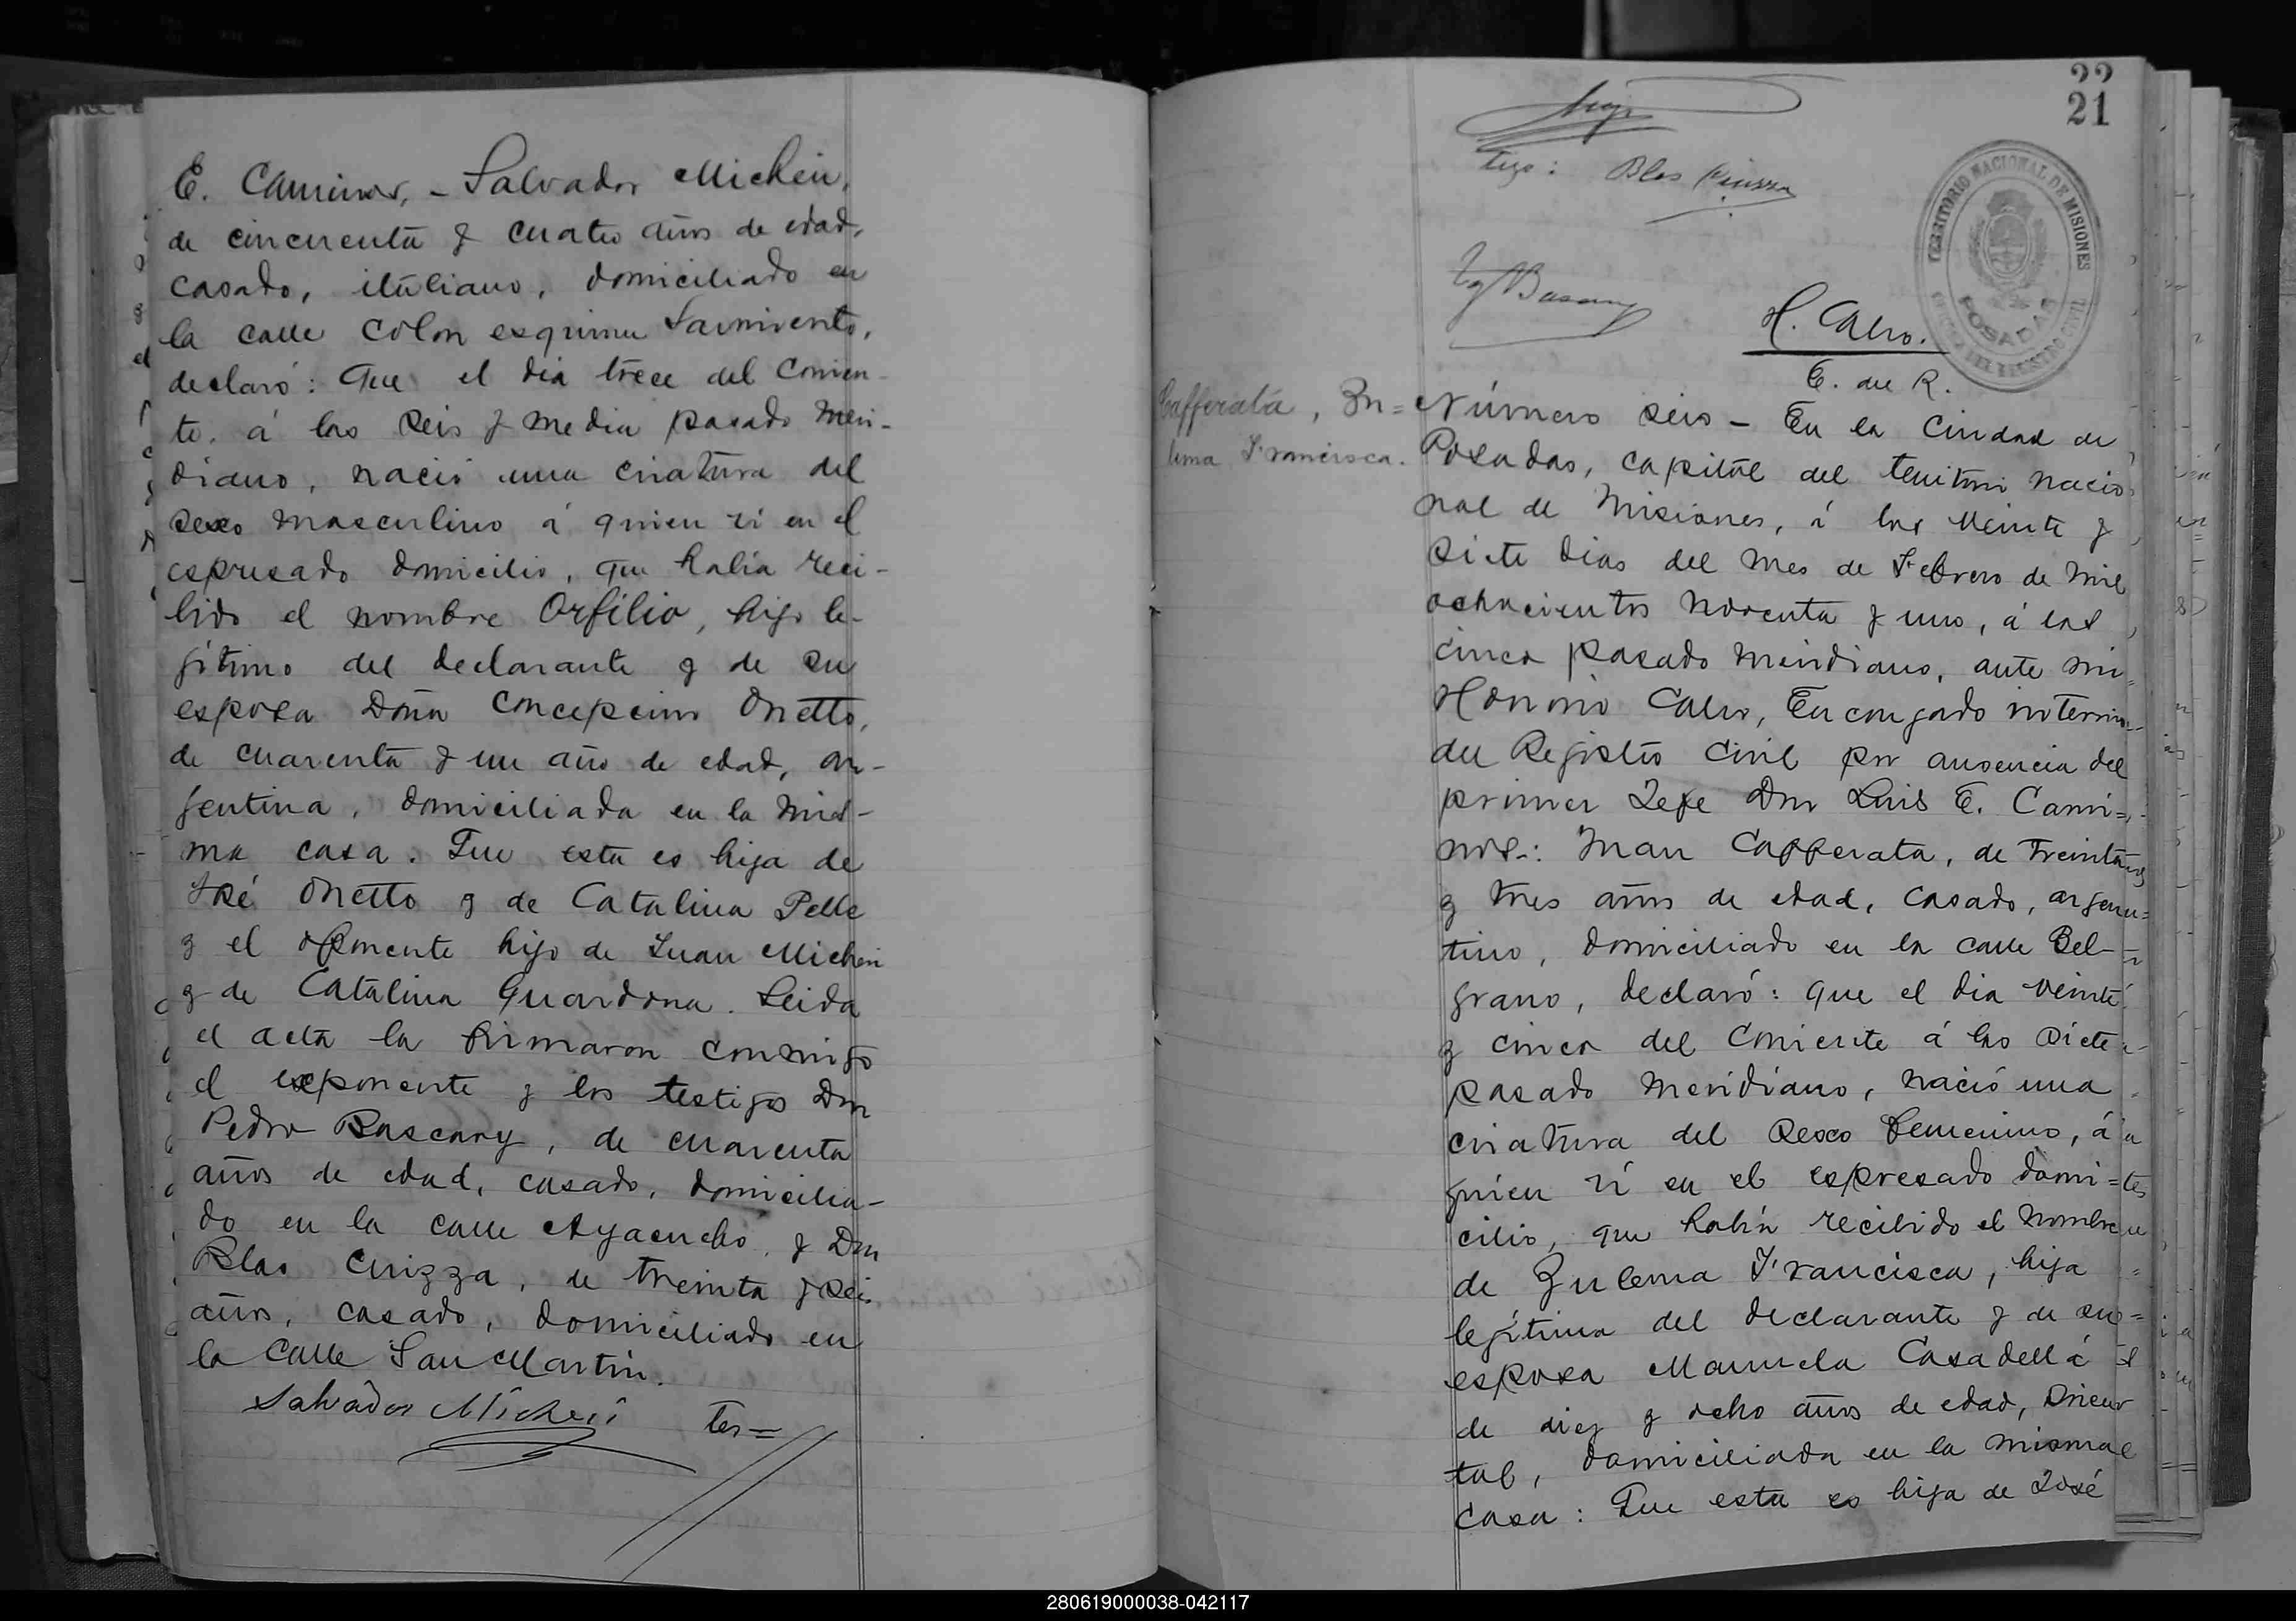 E. Caminos, - Salvador Micheri,
de cincuenta y cuatro años de edad,
casado, italiano, domiciliado en
la calle Colon esquina Sarmiento,
declaró: Que el dia trece del corrien-
te, á las seis y media pasado meri-
diano, nació una criatura del
sexo masculino á quien ví en el
espresado domicilio, que habia reci-
bido el nombre Orfilio, hijo le-
gítimo del declarante y de su
esposa Doña Concepcion Onetto,
de cuarenta y un año de edad, ar-
gentina, domiciliada en la mis-
ma casa. Que esta es hija de
José Onetto y de Catalina Pelle
y el esponente hijo de Juan Micheri
y de Catalina Guardona. Leida
el acta la firmaron conmigo
el exponente y los testigos Don
Pedro Bascary, de cuarenta
años de edad, casado, domicilia-
do en la calle Ayacucho, y Don
Blas Cirizza, de treinta y seis
años, casado, domiciliado en
la Calle San Martin.
Salvador Micheri tes=
22
21
tigo: Blas
TERRITORIO NACIONAL DE MISIONES
POSADAS
OFICINA DEL REGISTRO CIVIL
H. Calvo.
E. del R.
Cafferata, Zu=
lema Francisca.
Número seis - En la Ciudad de
Posadas, capital del territorio nacio
nal de Misiones, á los veinte y
siete dias del mes de Febrero de mil
ochocientos noventa y uno, á las
cinco pasado meridiano, ante mi
Honorio Calvo, Encargado interino
del Registro Civil por ausencia del
primer Jefe Don Luis E. Cami=
nos: Juan Cafferata, de treinta
y tres años de edad, casado, argen=
tino, domiciliado en la calle Bel-
grano, declaró: que el dia veinte
y cinco del corriente á las siete
pasado meridiano, nació una
criatura del sexo femenino, á
quien ví en el espresado domi=
cilio, que habia recibido el nombre
de Zulema Francisca, hija
legítima del declarante y de su
esposa Manuela Casadellá
de diez y ocho años de edad, orien
tal, domiciliada en la misma
casa: Que esta es hija de José
280619000038-042117